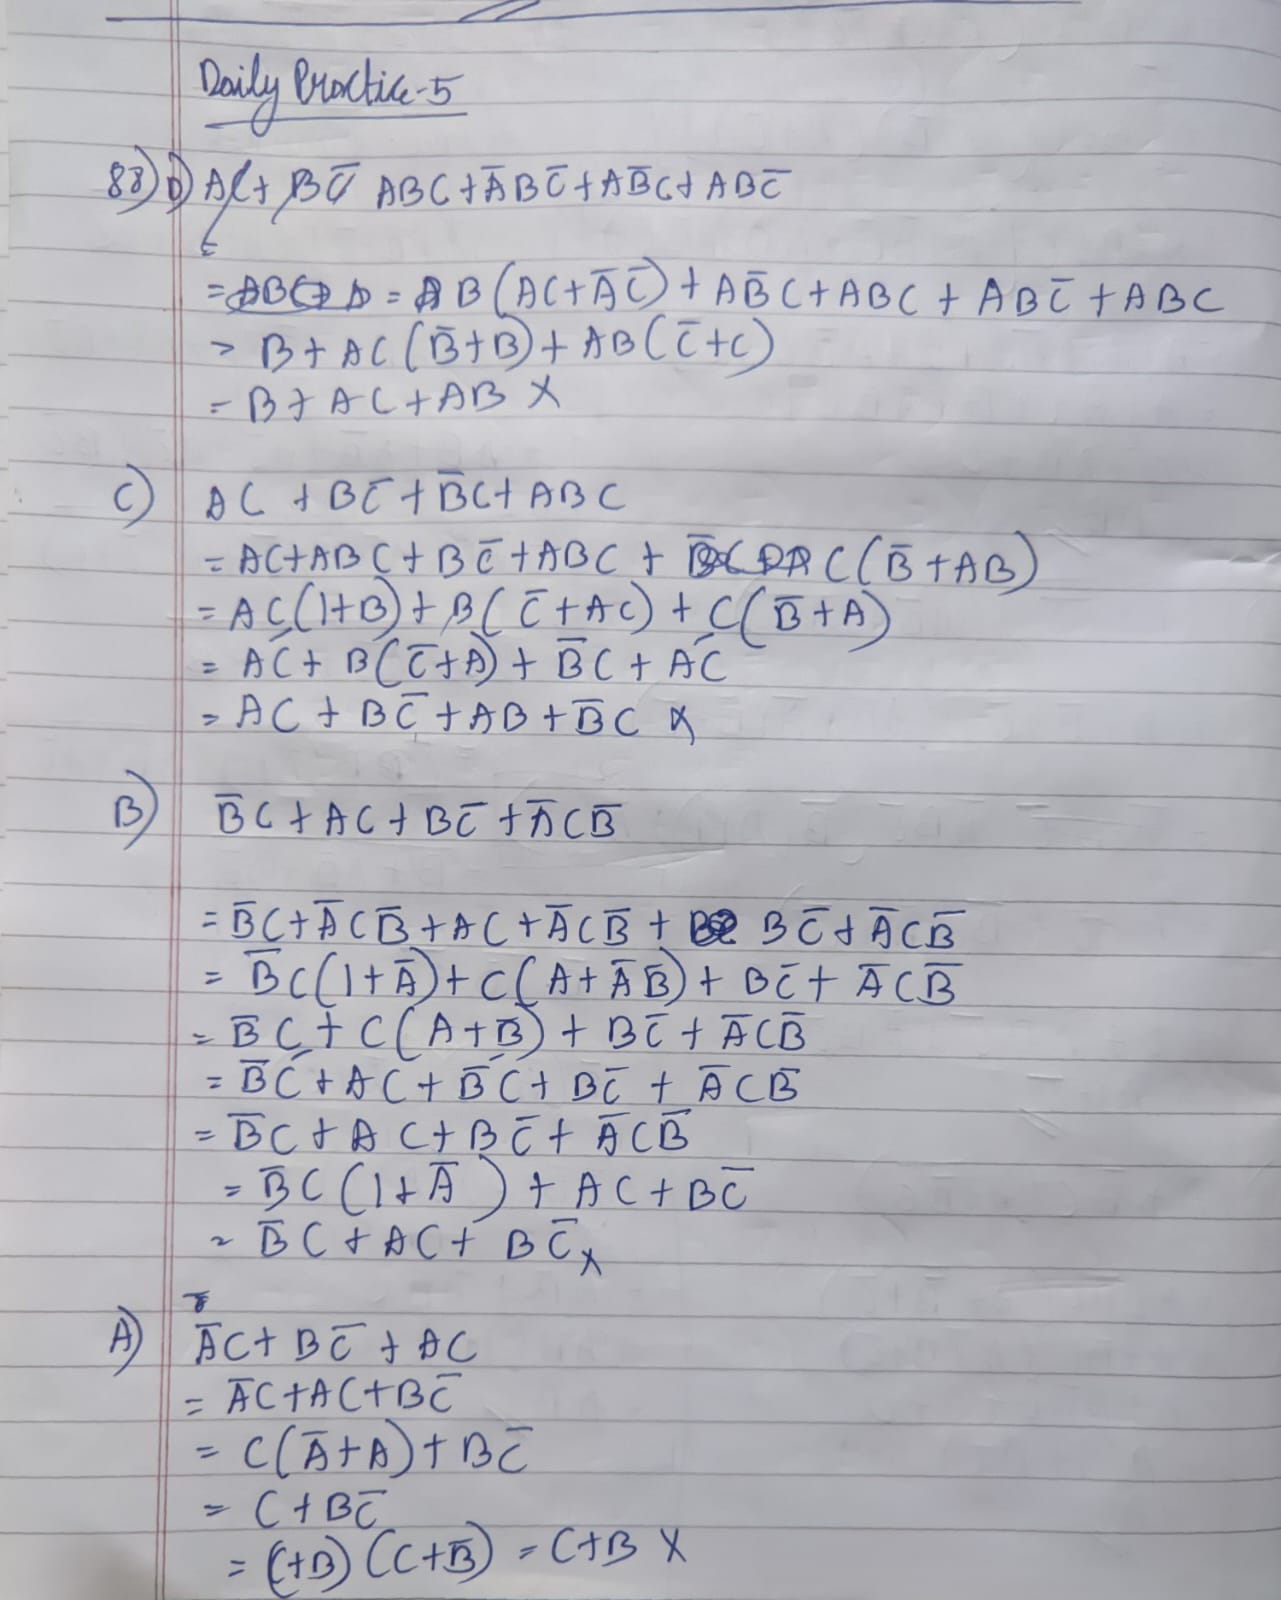 Daily Practice-5
88) D) AC + BC̅ ABC + A̅BC̅ + AB̅C + ABC̅
= ABC + A = B(AC + A̅C̅) + AB̅C + ABC + ABC̅ + ABC
= B + AC(B̅ + B) + AB(C̅ + C)
= B + AC + AB X
C) AC + BC̅ + B̅C + ABC
= AC + ABC + BC̅ + ABC + C(B̅ + AB)
= AC(1 + B) + B(C̅ + AC) + C(B̅ + A)
= AC + B(C̅ + A) + B̅C + AC
= AC + BC̅ + AB + B̅C X
B) B̅C + AC + BC̅ + A̅CB̅
= B̅C + A̅CB̅ + AC + A̅CB̅ + BC̅ + A̅CB̅
= B̅C(1 + A̅) + C(A + A̅B̅) + BC̅ + A̅CB̅
= B̅C + C(A + B̅) + BC̅ + A̅CB̅
= B̅C + AC + B̅C + BC̅ + A̅CB̅
= B̅C + AC + BC̅ + A̅CB̅
= B̅C(1 + A̅) + AC + BC̅
= B̅C + AC + BC̅ X
A) A̅C + BC̅ + AC
= A̅C + AC + BC̅
= C(A̅ + A) + BC̅
= C + BC̅
= (C+B)(C+B̅) = C+B X